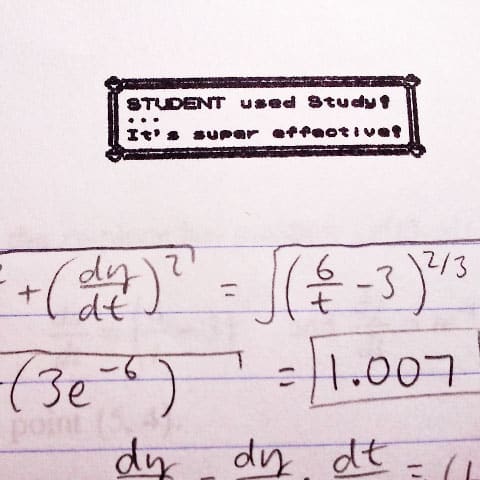 STUDENT used Study!
...
It's super effective!
+ (dy/dt)² = √(6/t - 3)^2/3
(3e⁻⁶) = 1.007
point (5, 4).
dy dy . dt = (1